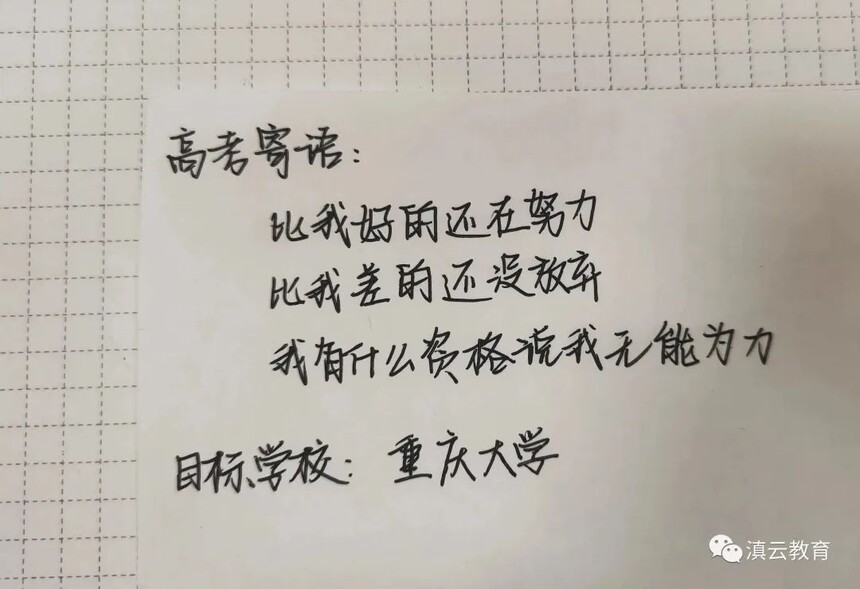 高考寄语:
比我好的还在努力
比我差的还没放弃
我有什么资格说我无能为力
目标学校: 重庆大学
滇云教育